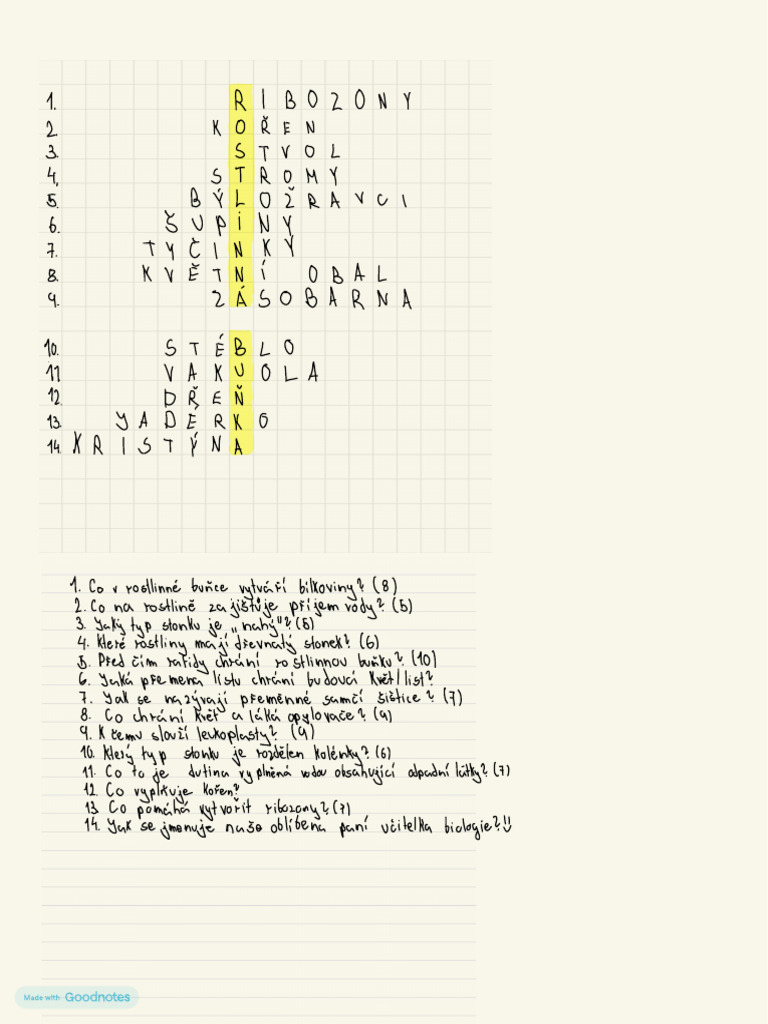 1. RIBOZONY
2. KOŘEN
3. STVOL
4. STROMY
5. BÝLOŽRAVCI
6. ŠUPINY
7. TYČINKY
8. KVĚTNÍ OBAL
9. ZÁSOBARNA
10. STÉBLO
11 VAKUOLA
12 DŘEŇ
13. JADÉRKO
14. KRISTÝNA
1. Co v rostlinné buňce vytváří bílkoviny? (8)
2. Co na rostlině zajišťuje příjem vody? (5)
3. Jaký typ stonku je „nahý"? (5)
4. Které rostliny mají dřevnatý stonek? (6)
5. Před čím rafidy chrání rostlinnou buňku? (10)
6. Jaká přeměna listu chrání budoucí květ/list?
7. Jak se nazývají přeměnné samčí šištice? (7)
8. Co chrání květ a láká opylovače? (9)
9. K čemu slouží leukoplasty? (9)
10. Který typ stonku je rozdělen kolénky? (6)
11. Co to je dutina vyplněná vodou obsahující odpadní látky? (7)
12. Co vyplňuje kořen?
13. Co pomáhá vytvořit ribozony? (7)
14. Jak se jmenuje naše oblíbená paní učitelka biologie?!!
Made with Goodnotes